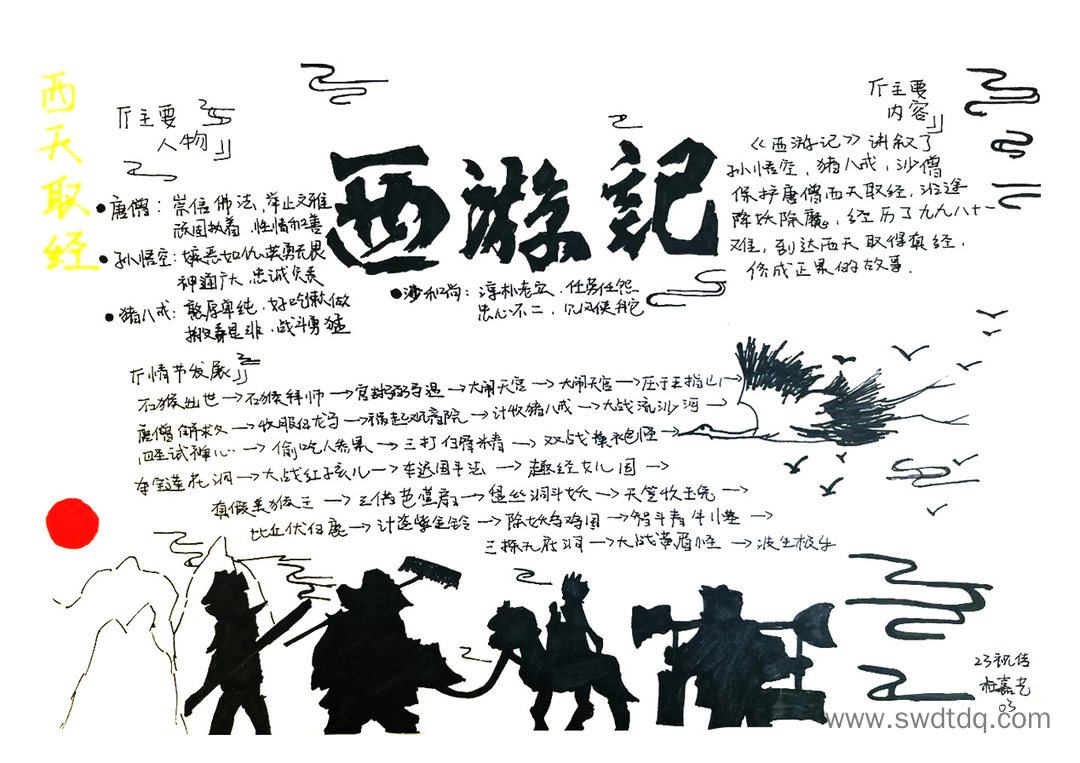 西天取经
『主要
人物』
西游記
『主要
内容』
《西游记》讲叙了
孙悟空，猪八戒，沙僧
保护唐僧西天取经，沿途
降妖除魔，经历了九九八十一
难，到达西天取得真经，
修成正果的故事.
●唐僧：崇信佛法，举止文雅
顽固执着，性情和善
●孙悟空：嫉恶如仇，英勇无畏
神通广大，忠诚负责
●猪八戒：憨厚单纯，好吃懒做
搬弄是非，战斗勇猛
●沙和尚：淳朴老实，任劳任怨
忠心不二
『情节发展』
石猴出世→石猴拜师→官封弼马温→大闹天宫→大闹天宫→压于五指山→
唐僧→收服白龙马→观音院→计收猪八戒→大战流沙河→
四圣试禅心→偷吃人参果→三打白骨精→双战→
莲花洞→大战红子孩儿→车迟国斗法→趣经女儿国→
真假美猴王→三借芭蕉扇→丝洞斗妖→天竺收玉兔→
比丘伏白鹿→计盗紫金铃→除妖乌鸡国→智斗青牛→
三探无底洞→大战黄眉怪→
23视传
杜嘉艺
03
www.swdtdq.com